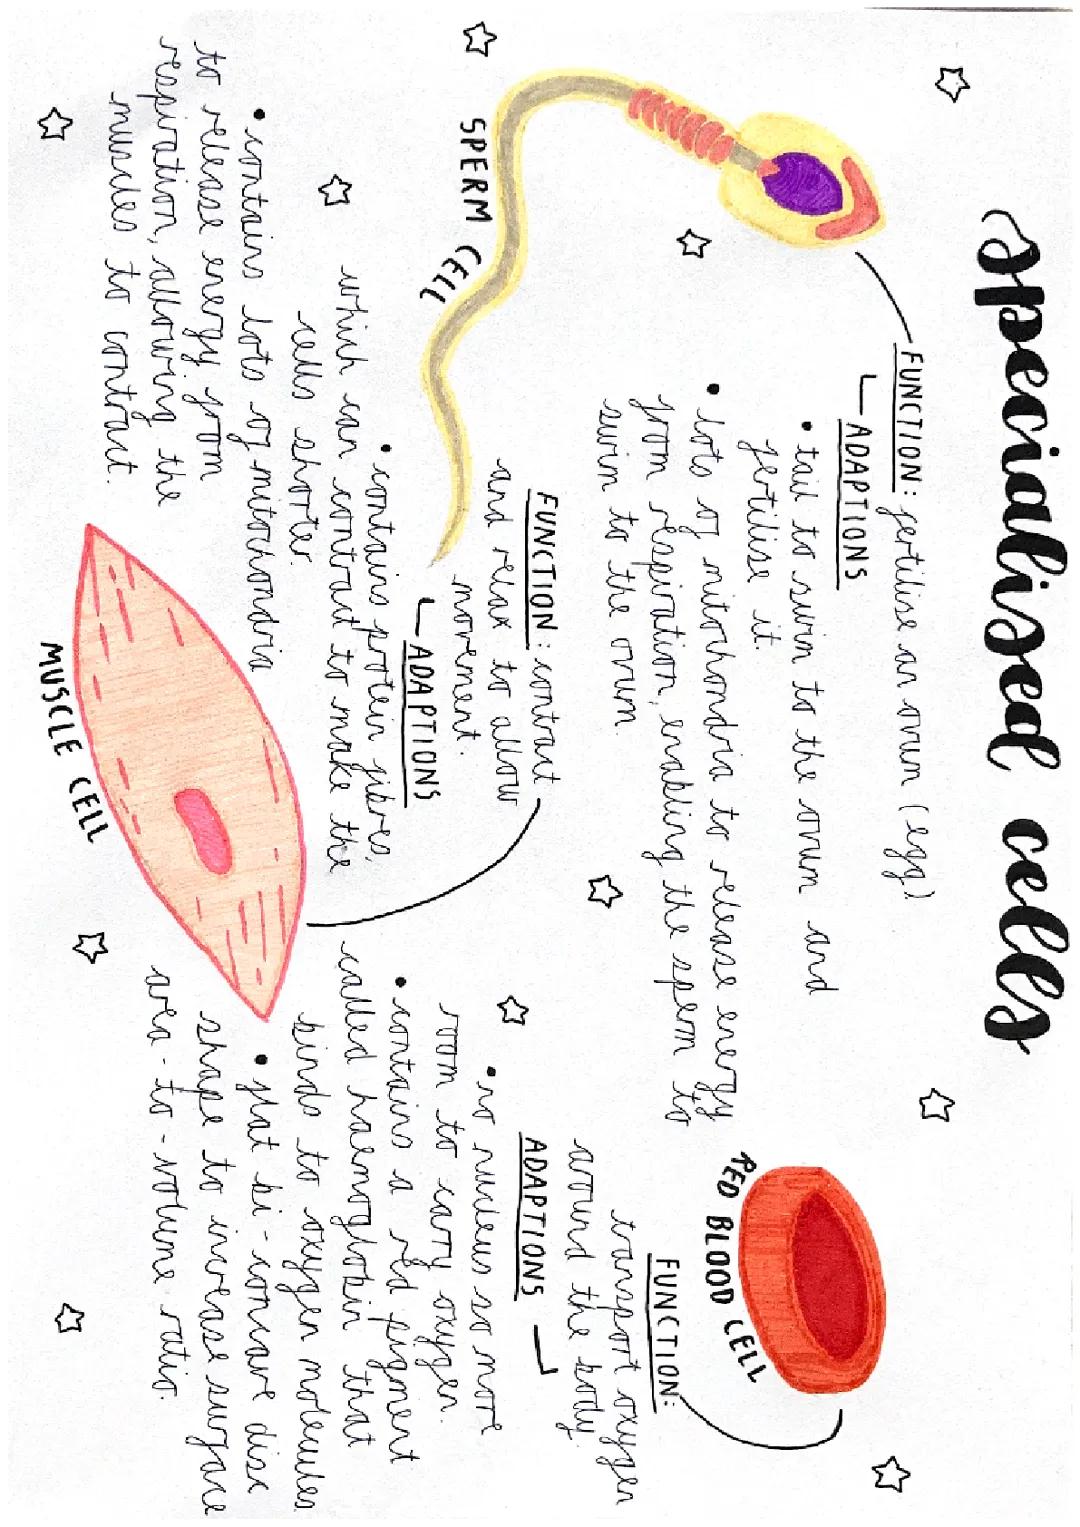 specialised cells
FUNCTION: fertilise an ovum (egg)
ADAPTIONS
• tail to swim to the ovum and
fertilise it.
• lots of mitochondria to release energy
from respiration, enabling the sperm to
swim to the ovum.
SPERM CELL
RED BLOOD CELL
FUNCTION:
transport oxygen
around the body.
ADAPTIONS
• no nucleus so more
room to carry oxygen.
• contains a red pigment
called haemoglobin that
binds to oxygen molecules
• flat bi-concave disc
shape to increase surface
area-to-volume ratio.
FUNCTION: contract
and relax to allow
movement.
ADAPTIONS
• contains protein fibres,
which can contract to make the
cells shorter.
• contains lots of mitochondria
to release energy from
respiration, allowing the
muscles to contract.
MUSCLE CELL